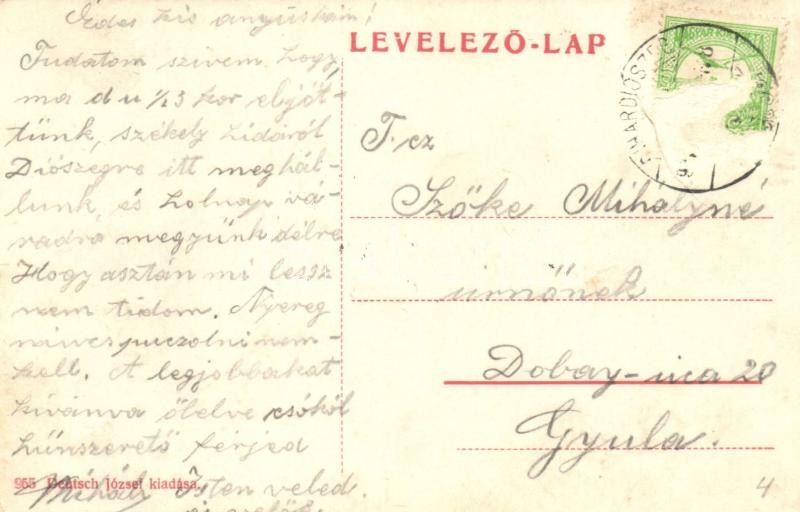 Édes kis anyuskám!
Tudatom szivem hogy
ma d u ½ 3 kor eljöt-
tünk, székely hidáról
Diószegre itt meghál-
lunk, és holnap vá-
radra megyünk délre
Hogy asztán mi lessz
nem tudom. Nyereg
nincs puczolni nem-
kell. A legjobbakat
kivánva ölelve csókol
hűnszerető férjed
Mihály Isten veled
965 Deutsch József kiadása.
LEVELEZŐ-LAP
MAGYAR KIR
BIHARDIÓSZEG
T. cz
Szőke Mihályné
urnőnek
Dobay-uca 20
Gyula.
4